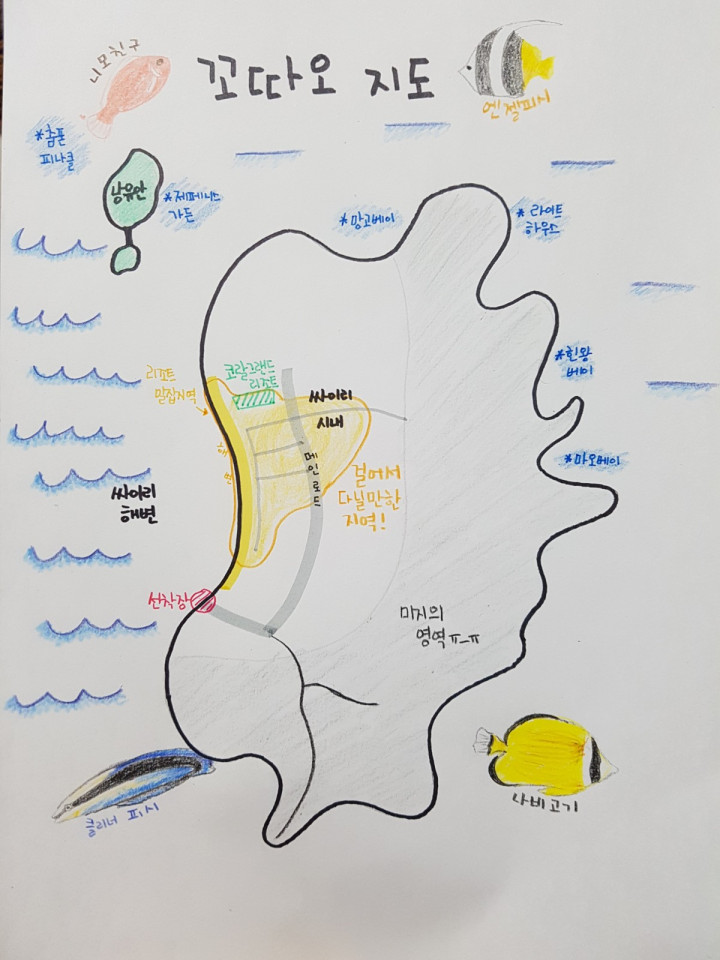 니모친구
꼬따오 지도
엔젤피시
*춤폰
피나클
낭유안
*제페니즈
가든
*망고베이
*라이트
하우스
*힌왕
베이
*마오베이
리조트
밀집지역
코랄그랜드
리조트
싸이리
시내
해변
메인로드
걸어서
다닐만한
지역!
싸이리
해변
선착장
미지의
영역ㅠ_ㅠ
클리너 피시
나비고기